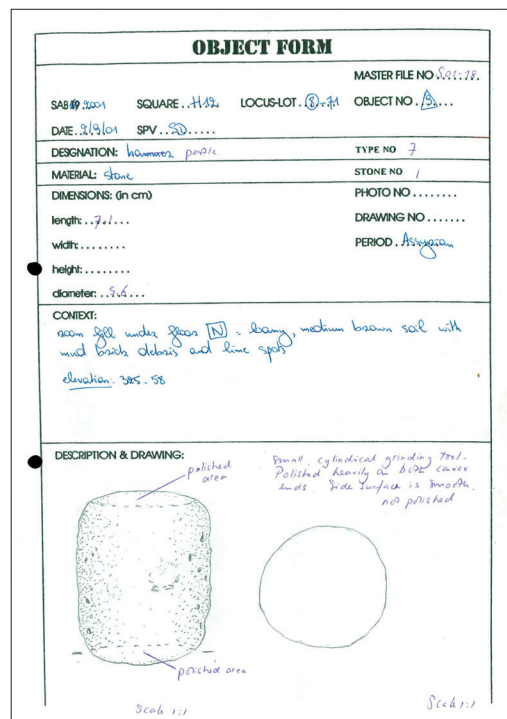 OBJECT FORM
MASTER FILE NO S01-18.
SAB 19 2001 SQUARE..H12. LOCUS-LOT..(8)-71 OBJECT NO.(9)...
DATE.2/9/01 SPV..SD.....
DESIGNATION: hammer pestle TYPE NO 7
MATERIAL: stone STONE NO 1
DIMENSIONS: (in cm) PHOTO NO........
length:..7.1... DRAWING NO.......
width:........ PERIOD.Assyrian
height:........
diameter:..5.6...
CONTEXT:
room fill under floor [N] = loamy, medium brown soil with
mud brick debris and lime spots
elevation: 325.58
DESCRIPTION & DRAWING:
Small, cylindical grinding tool.
Polished heavily on both
ends. Side surface is smooth,
not polished
polished
area
polished area
Scale 1:1
Scale 1:1